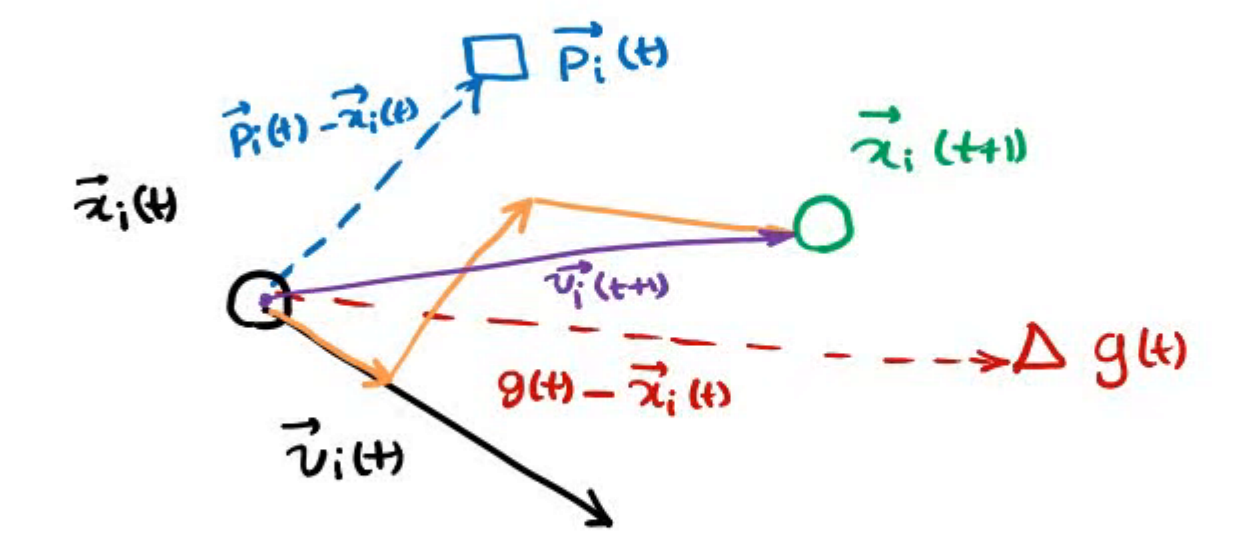 p⃗ᵢ(t)
p⃗ᵢ(t) - x⃗ᵢ(t)
x⃗ᵢ(t+1)
x⃗ᵢ(t)
v⃗ᵢ(t+1)
g(t)
g(t) - x⃗ᵢ(t)
v⃗ᵢ(t)